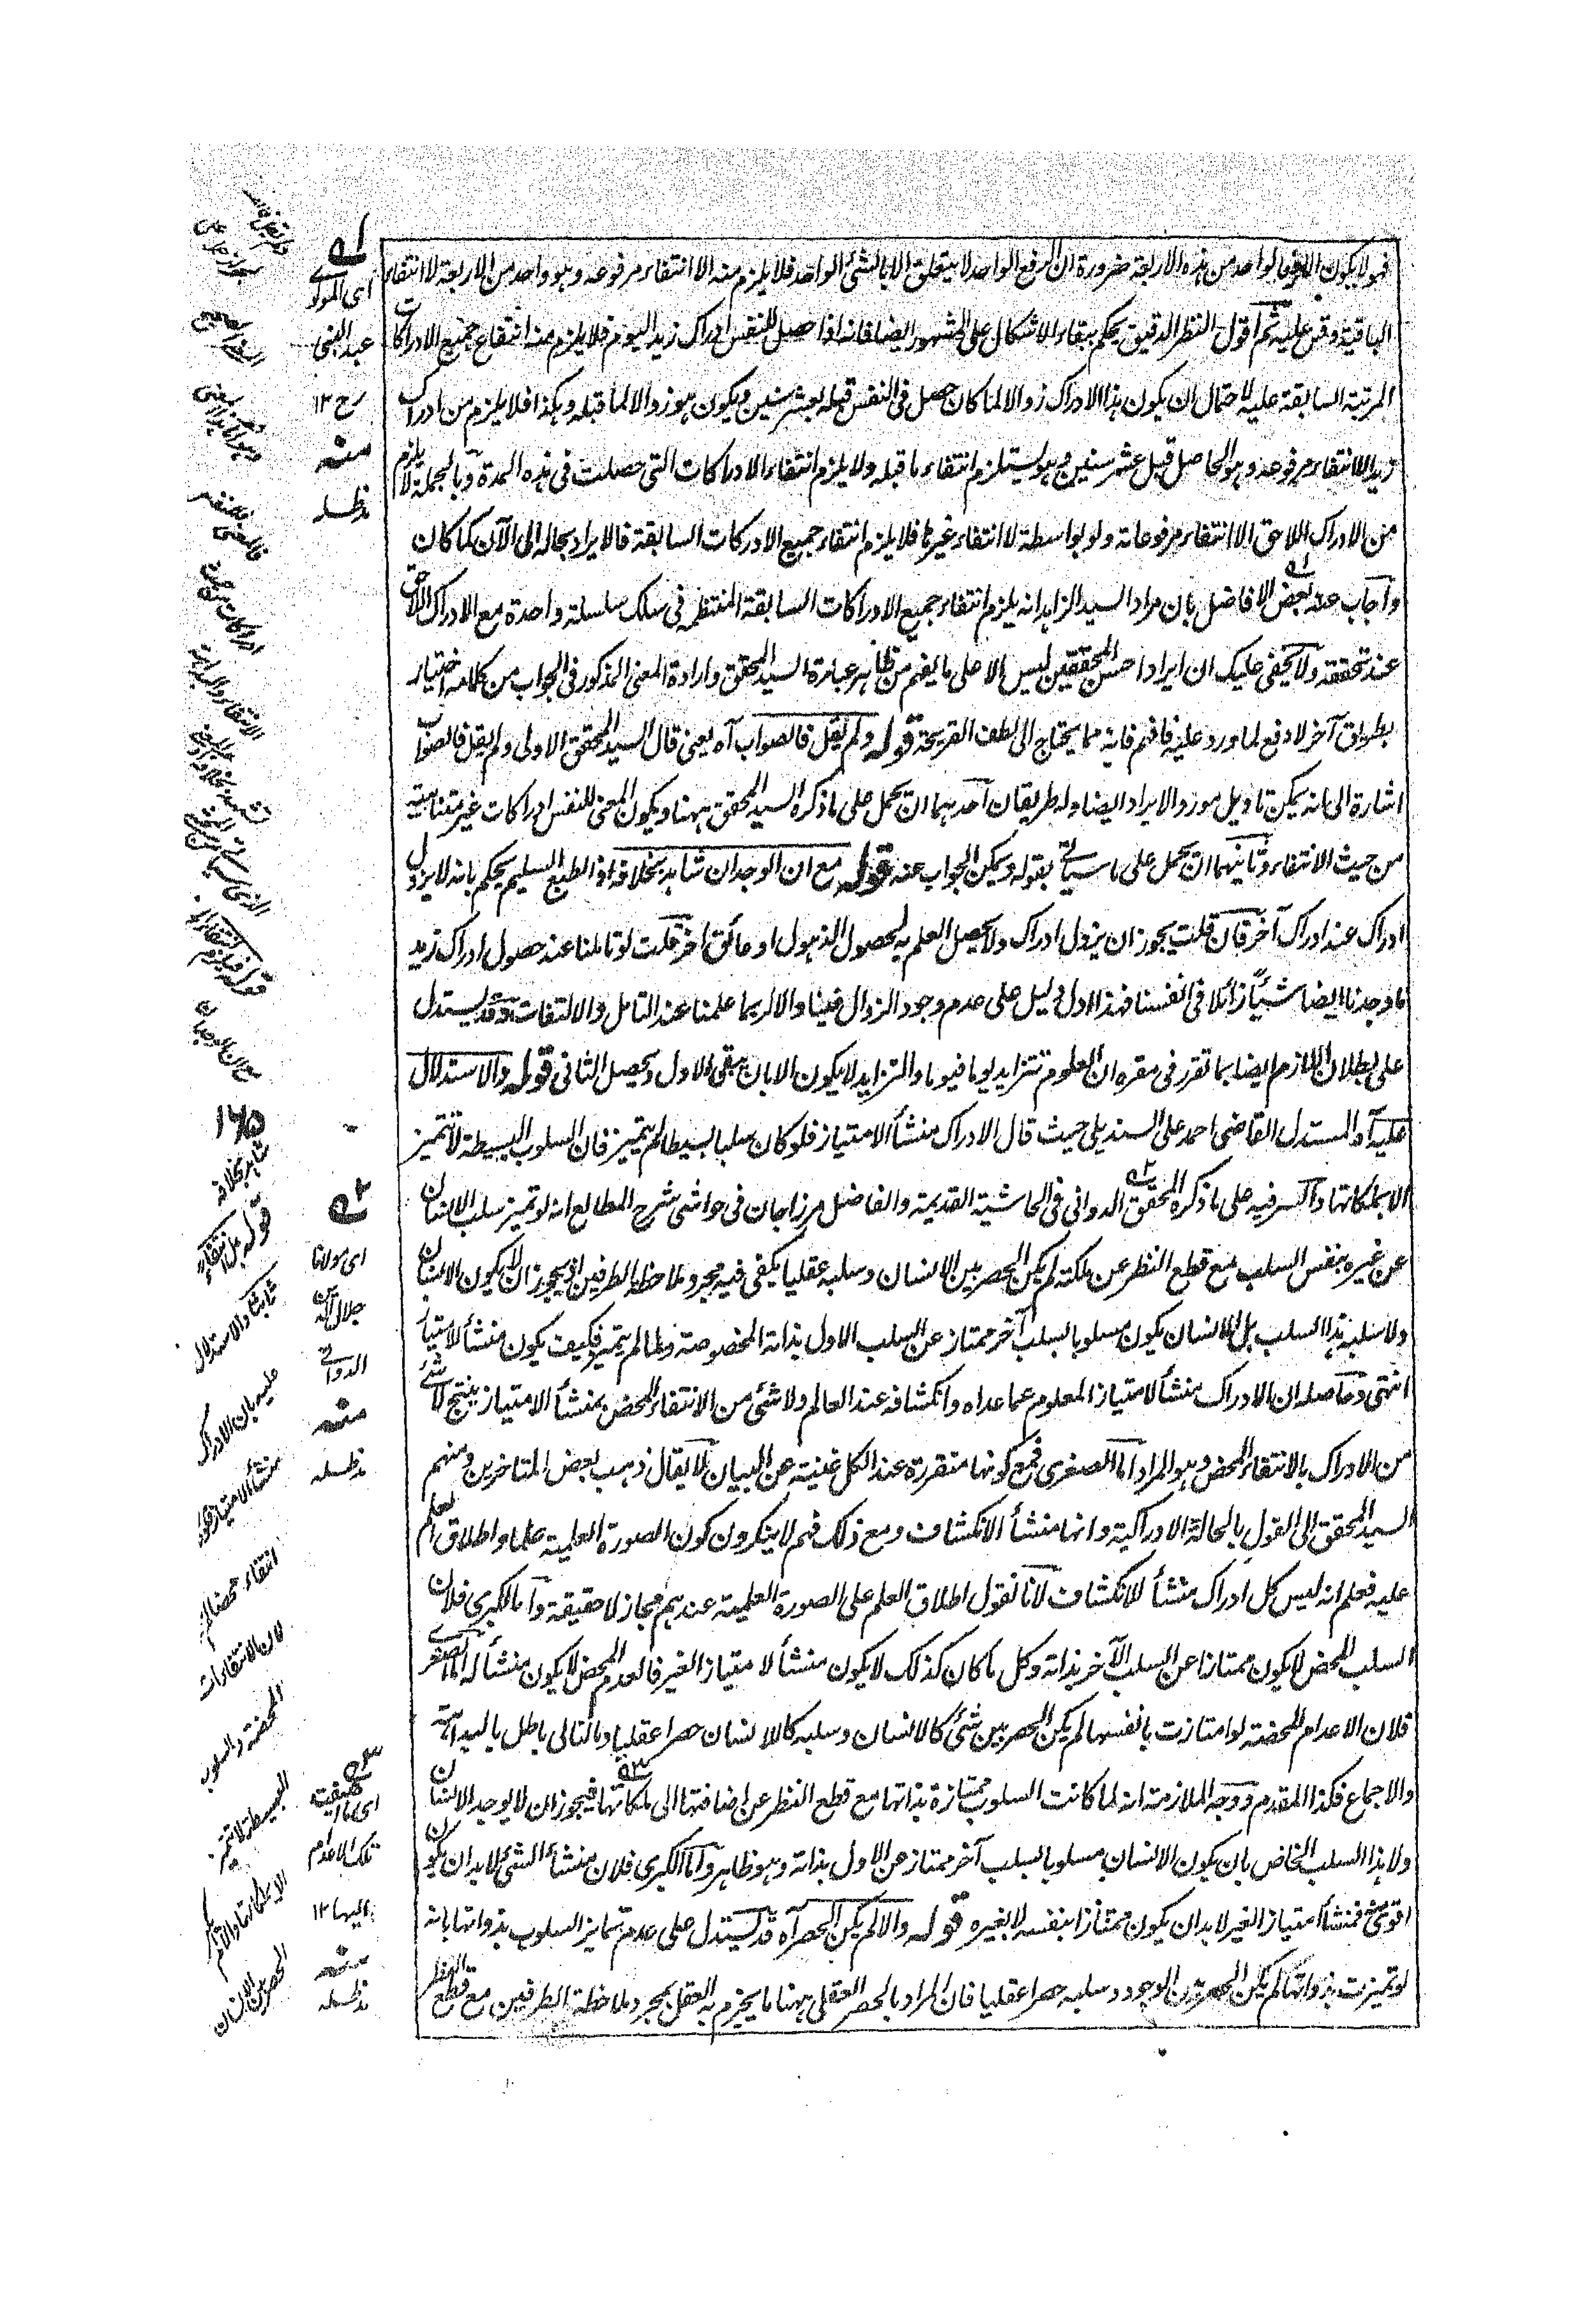 فهو لا يكون الا رفعا لواحد من هذه الاربعة ضرورة ان الرفع الواحد لا يتعلق الا بالشئ الواحد فلا يلزم منه الا انتفاء مرفوعه وهو واحد من الاربعة لا انتفاء
الباقية وقس عليه ثم اقول النظر الدقيق يحكم ببقاء الاشكال على المشهور ايضا فانه اذا حصل للنفس ادراك زيد اليوم فلا يلزم منه انتفاء جميع الادراكات
المرتبة السابقة عليه لاحتمال ان يكون هذا الادراك زوالا لما كان حصل فى النفس قبله بعشر سنين ويكون هو زوالا لما قبله وهكذا فلا يلزم من ادراك
زيد الا انتفاء مرفوعه وهو الحاصل قبل عشر سنين وهو يستلزم انتفاء ما قبله ولا يلزم انتفاء الادراكات التى حصلت فى هذه المدة وبالجملة لا يلزم
من الادراك اللاحق الا انتفاء مرفوعاته ولو بواسطة لا انتفاء غيرها فلا يلزم انتفاء جميع الادركات السابقة فالايراد بحاله الى الآن كما كان
واجاب عنه بعض الافاضل بان مراد السيد الزاهد انه يلزم انتفاء جميع الادراكات السابقة المنتظمة فى سلك سلسلة واحدة مع الادراك اللاحق
عند تحققه ولا يخفى عليك ان ايراد احسن المحققين ليس الا على ما يفهم من ظاهر عبارة السيد المحقق وارادة المعنى المذكور فى الجواب من كلامه اختيار
بطريق آخر لا دفع لما ورد عليه فافهم فانه مما يحتاج الى لطف القريحة قوله ولم يقل فالصواب آه يعنى قال السيد المحقق الاولى ولم يقل فالصواب
اشارة الى انه يمكن تاويل مورد الايراد ايضا وله طريقان احدهما ان يحمل على ما ذكره السيد المحقق ههنا ويكون المعنى للنفس ادراكات غير متناهية
من حيث الانتفاء وثانيهما ان يحمل على ما سياتى بقوله ويمكن الجواب عنه قوله مع ان الوجدان شاهد بخلافه اذ الطبع السليم يحكم بانه لا يزول
ادراك عند ادراك آخر فان قلت يجوز ان يزول ادراك ولا يحصل العلم به لحصول الذهول او عائق آخر قلت لو تاملنا عند حصول ادراك زيد
ما وجدنا ايضا شيئا زائلا فى انفسنا فهذا ادل دليل على عدم وجود الزوال فينا والا لربما علمنا عند التامل والالتفات وقد يستدل
على بطلان اللازم ايضا بما تقرر فى مقره ان العلوم تتزايد يوما فيوما والتزايد لا يكون الا بان يبقى الاول ويحصل الثانى قوله والاستدلال
عليه آه المستدل القاضى احمد على السنديلى حيث قال الادراك منشأ الامتياز فلو كان سلبا بسيطا لم يتميز فان السلوب البسيطة لا تتميز
الا بملكاتها والسر فيه على ما ذكره المحقق الدوانى فى الحاشية القديمة والفاضل مرزاجان فى حواشى شرح المطالع انه لو تميز سلب الانسان
عن غيره بنفس السلب مع قطع النظر عن ملكته لم يكن الحصر بين الانسان وسلبه عقليا يكفى فيه مجرد ملاحظة الطرفين اذ يجوز ان لا يكون الانسان
ولا سلبه هذا السلب بل الانسان يكون مسلوبا بسلب آخر ممتاز عن السلب الاول بذاته المخصوصة ولما لم يتميز فكيف يكون منشأ للامتياز
انتهى وحاصله ان الادراك منشأ لامتياز المعلوم عما عداه وانكشافه عند العالم ولا شئ من الانتفاء المحض بمنشأ الامتياز ينتج لا شئ
من الادراك بالانتفاء المحض وهو المراد اما الصغرى فمع كونها متقررة عند الكل غنية عن البيان لا يقال ذهب بعض المتاخرين ومنهم
السيد المحقق الى القول بالحالة الادراكية وانها منشأ الانكشاف ومع ذلك فهم لا ينكرون كون الصورة العلمية علما واطلاق العلم
عليه فعلم انه ليس كل ادراك منشأ للانكشاف لانا نقول اطلاق العلم على الصورة العلمية عندهم مجاز لا حقيقة واما الكبرى فلان
السلب المحض لا يكون ممتازا عن السلب الآخر بذاته وكل ما كان كذلك لا يكون منشأ لامتياز الغير فالعدم المحض لا يكون منشأ له اما الصغرى
فلان الاعدام المحضة لو امتازت بانفسها لم يكن الحصر بين شئ كالانسان وسلبه كاللانسان حصرا عقليا والتالى باطل بالبداهة
والاجماع فكذا المقدم ووجه الملازمة انه لما كانت السلوب ممتازة بذاتها مع قطع النظر عن اضافتها الى ملكاتها فيجوز ان لا يوجد الانسان
ولا هذا السلب الخاص بان يكون الانسان مسلوبا بسلب آخر ممتاز عن الاول بذاته وهو ظاهر واما الكبرى فلان منشأ الشئ لا بد ان يكون
اقوى منه فمنشأ امتياز الغير لا بد ان يكون ممتازا بنفسه لا بغيره قوله والا لم يكن الحصر آه قد يستدل على عدم تمايز السلوب بذواتها بانه
لو تميزت بذواتها لم يكن الحصر بين الوجود وسلبه حصرا عقليا فان المراد بالحصر العقلى ههنا ما يجزم به العقل بمجرد ملاحظة الطرفين مع قطع النظر
اى المولوى
عبد النبى
رح ١٢
منه
مد ظله
١٦٥
شاهد بخلافه
قوله بل انتفاء
والاستدلال
عليه بان الادراك
منشأ الامتياز فلو
انتفاء محضا لم
فان الانتفاءات
المحضة والسلوب
البسيطة لا تتميز
الا بملكاتها والا لم يكن
الحصر بين الانسان
اى مولانا
جلال الدين
الدوانى
منه
مد ظله
تلك الاعدام
اليها ١٢
منه
مد ظله